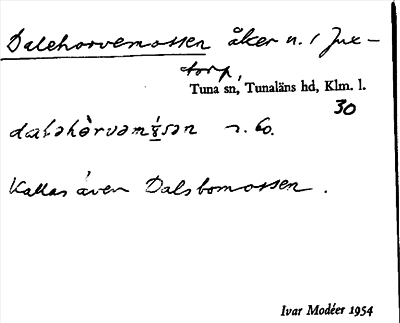 Dalehorvemossen åker n. i Jux-
torp,
Tuna sn, Tunaläns hd, Klm. l.
30
Kallas även Dalsbomossen.
Ivar Modéer 1954